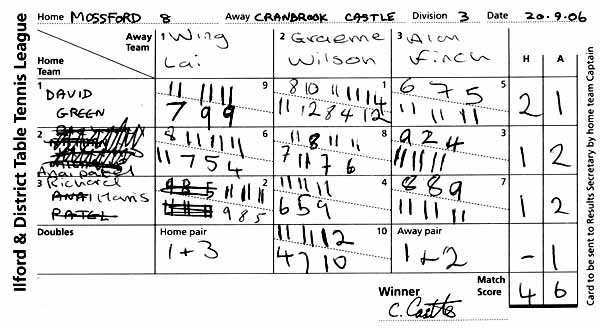 Ilford & District Table Tennis League
Home MOSSFORD 8 Away CRANBROOK CASTLE Division 3 Date 20.9.06
Away Team 1 Wing Lai 2 Graeme Wilson 3 Alan Finch H A
Home Team
1 DAVID GREEN 9 11 11 11 1 8 10 11 11 14 5 6 7 5 2 1
7 9 9 11 12 8 4 12 11 11 11
2 Anai patel 6 8 11 11 11 8 11 8 11 11 3 9 2 4 1 2
11 7 5 4 7 11 7 6 11 11 11
3 Richard Harris 2 11 11 11 4 11 11 11 7 8 8 9 1 2
ANAI PATEL 9 8 5 6 5 9 11 11 11
Doubles Home pair 10 11 11 11 12 Away pair
1+3 4 7 10 1+2 - 1
Winner C. Castle Match Score 4 6
Card to be sent to Results Secretary by home team Captain